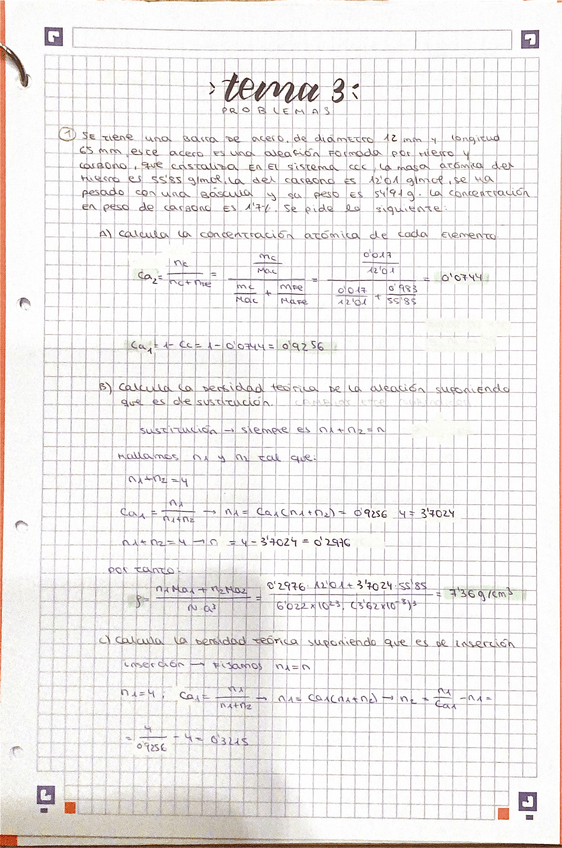 tema 3:
PROBLEMAS
1 Se tiene una barra de acero, de diámetro 12 mm y longitud
65 mm, este acero es una aleación formada por hierro y
carbono, que cristaliza en el sistema ccc, la masa atómica del
hierro es 55'85 g/mol, la del carbono es 12'01 g/mol, se ha
pesado con una báscula y su peso es 54'91g. La concentración
en peso de carbono es 1'7%. Se pide lo siguiente:
A) Calcula la concentración atómica de cada elemento
Ca2 = nc / (nc + nFe) = (mc/Mac) / (mc/Mac + mFe/MaFe) = (0'017/12'01) / (0'017/12'01 + 0'983/55'85) = 0'0744
Ca1 = 1 - Cc = 1 - 0'0744 = 0'9256
B) Calcula la densidad teórica de la aleación suponiendo
que es de sustitución.
sustitución → siempre es n1 + n2 = n
Hallamos n1 y n2 tal que:
n1 + n2 = 4
Ca1 = n1 / (n1+n2) → n1 = Ca1(n1+n2) = 0'9256 · 4 = 3'7024
n1 + n2 = 4 → n = 4 - 3'7024 = 0'2976
Por tanto:
ρ = (n1Ma1 + n2Ma2) / (N a³) = (0'2976 · 12'01 + 3'7024 · 55'85) / (6'022 × 10²³ · (3'62×10⁻⁸)³) = 7'36 g/cm³
C) Calcula la densidad teórica suponiendo que es de inserción
inserción → Fijamos n1 = n
n1 = 4 ; Ca1 = n1 / (n1+n2) → n1 = Ca1(n1+n2) → n2 = n1/Ca1 - n1 =
= 4/0'9256 - 4 = 0'3215